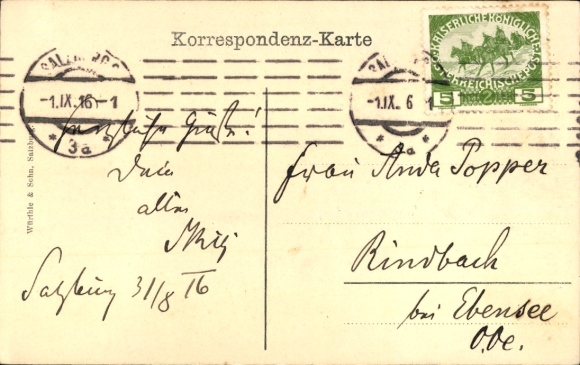 Korrespondenz-Karte
KAISERLICHE KÖNIGLICHE
ÖSTERREICHISCHE POST
5 5
SALZBURG 2
-1.IX.16-1
* 3a *
-1.IX. 6 1
Herzliche Grüße!
Dein
alter
Salzburg 31/8 16
Frau Anda Popper
Rindbach
bei Ebensee
O.Oe.
Würthle & Sohn, Salzburg